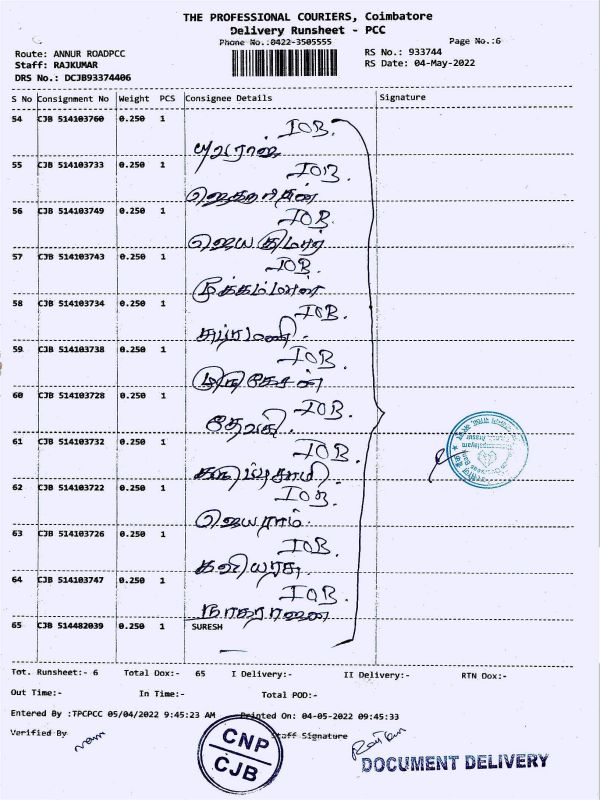 THE PROFESSIONAL COURIERS, Coimbatore
Delivery Runsheet - PCC
Phone No.:0422-3505555
Page No.:6
Route: ANNUR ROADPCC
RS No.: 933744
Staff: RAJKUMAR
RS Date: 04-May-2022
DRS No.: DCJB93374406
S No Consignment No Weight PCS Consignee Details Signature
54 CJB 514103760 0.250 1 IOB.
யுவராஜ்
55 CJB 514103733 0.250 1 IOB.
56 CJB 514103749 0.250 1 IOB.
ஜெயகுமார்
57 CJB 514103743 0.250 1 IOB.
முத்தம்மாள்
58 CJB 514103734 0.250 1 IOB.
சுப்ரமணி
59 CJB 514103738 0.250 1 IOB.
முருகேசன்
60 CJB 514103728 0.250 1 IOB.
தேவகி.
61 CJB 514103732 0.250 1 IOB.
கருப்புசாமி
62 CJB 514103722 0.250 1 IOB
ஜெயராம்
63 CJB 514103726 0.250 1 IOB.
கவியரசு
64 CJB 514103747 0.250 1 IOB.
நாகராஜன்
65 CJB 514482039 0.250 1 SURESH
Tot. Runsheet:- 6 Total Dox:- 65 I Delivery:- II Delivery:- RTN Dox:-
Out Time:- In Time:- Total POD:-
Entered By :TPCPCC 05/04/2022 9:45:23 AM Printed On: 04-05-2022 09:45:33
Verified By Staff Signature
CNP
CJB
DOCUMENT DELIVERY